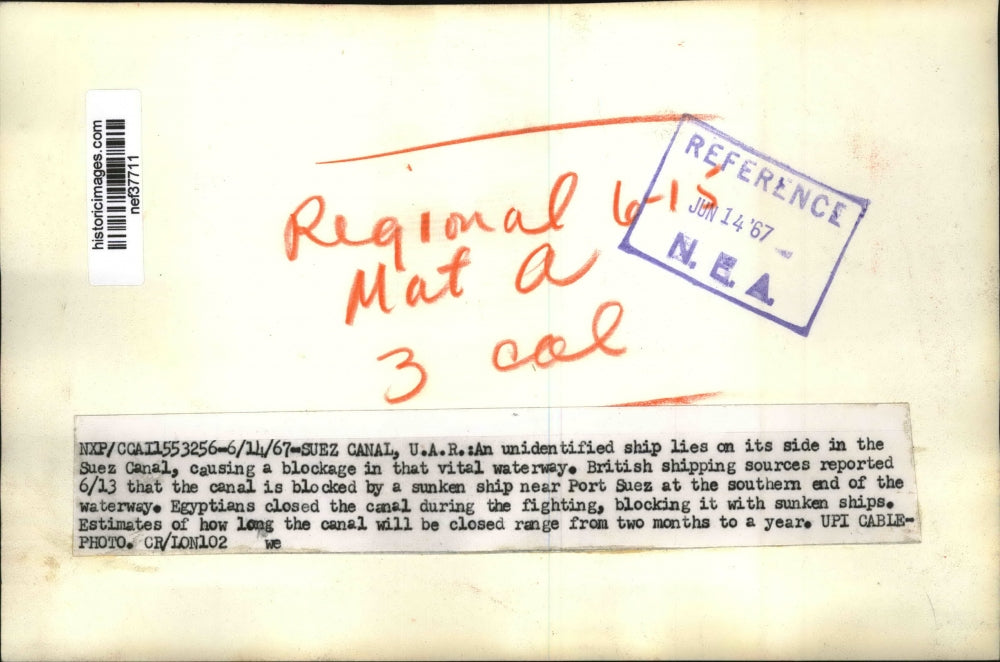 historicimages.com
nef37711
REFERENCE
JUN 14 '67
N. E. A.
Regional 6-15
Mat A
3 col
NXP/CCAI1553256-6/14/67-SUEZ CANAL, U.A.R.:An unidentified ship lies on its side in the
Suez Canal, causing a blockage in that vital waterway. British shipping sources reported
6/13 that the canal is blocked by a sunken ship near Port Suez at the southern end of the
waterway. Egyptians closed the canal during the fighting, blocking it with sunken ships.
Estimates of how long the canal will be closed range from two months to a year. UPI CABLE-
PHOTO. CR/LON102 we